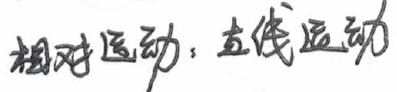 相对运动：直线运动